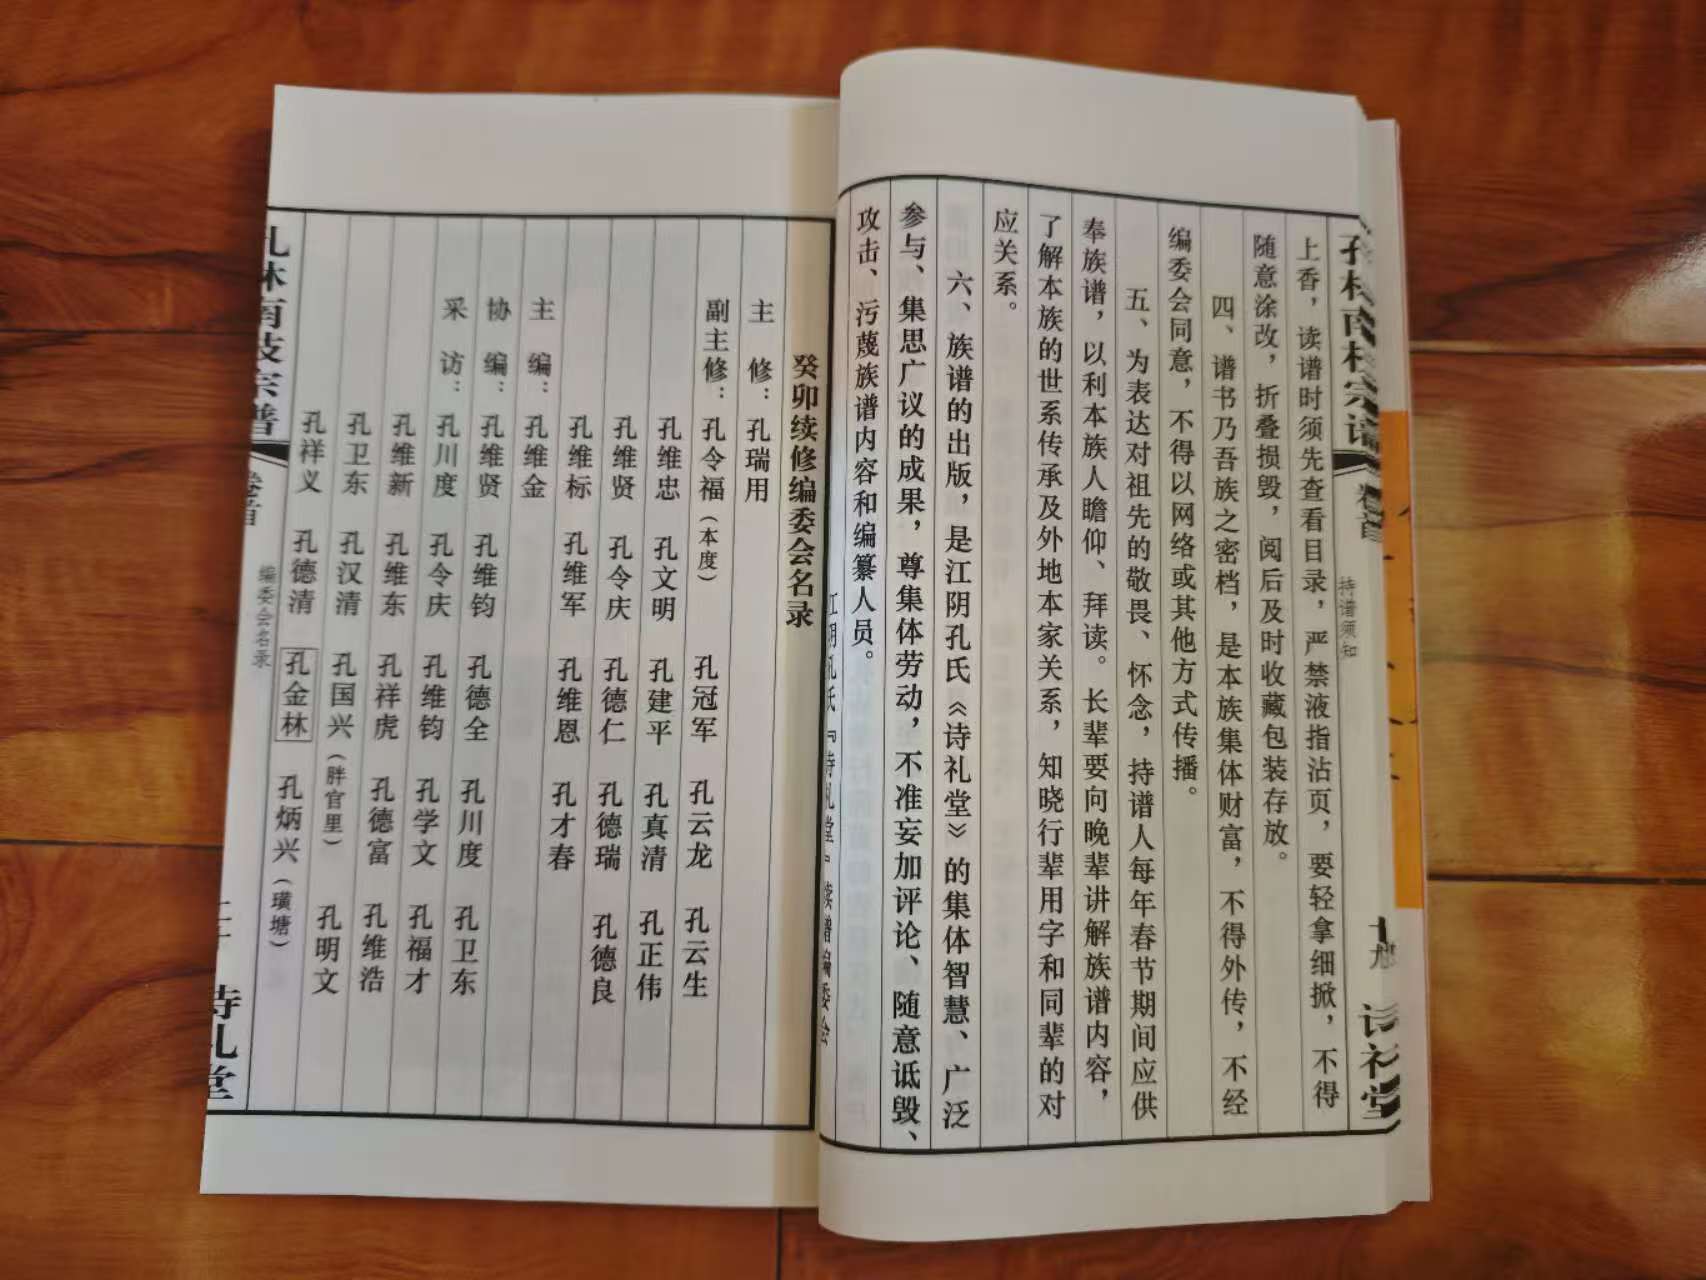 上香，读谱时须先查看目录，严禁液指沾页，要轻拿细掀，不得
随意涂改，折叠损毁，阅后及时收藏包装存放。
四、谱书乃吾族之密档，是本族集体财富，不得外传，不经
编委会同意，不得以网络或其他方式传播。
五、为表达对祖先的敬畏、怀念，持谱人每年春节期间应供
奉族谱，以利本族人瞻仰、拜读。长辈要向晚辈讲解族谱内容，
了解本族的世系传承及外地本家关系，知晓行辈用字和同辈的对
应关系。
六、族谱的出版，是江阴孔氏《诗礼堂》的集体智慧、广泛
参与、集思广议的成果，尊集体劳动，不准妄加评论、随意诋毁、
攻击、污蔑族谱内容和编纂人员。
江阴孔氏『诗礼堂』续谱编委会
持谱须知
卷首
十九
诗礼堂
癸卯续修编委会名录
主 修：孔瑞用
副主修：孔令福（本度） 孔冠军 孔云龙 孔云生
孔维忠 孔文明 孔建平 孔真清 孔正伟
孔维贤 孔令庆 孔德仁 孔德瑞 孔德良
孔维标 孔维军 孔维恩 孔才春
主 编：孔维金
协 编：孔维贤 孔维钧 孔德全 孔川度 孔卫东
采 访：孔川度 孔令庆 孔维钧 孔学文 孔福才
孔维新 孔维东 孔祥虎 孔德富 孔维浩
孔卫东 孔汉清 孔国兴（胖官里） 孔明文
孔祥义 孔德清 孔金林 孔炳兴（璜塘）
孔林南枝宗谱
卷首
编委会名录
二十
诗礼堂